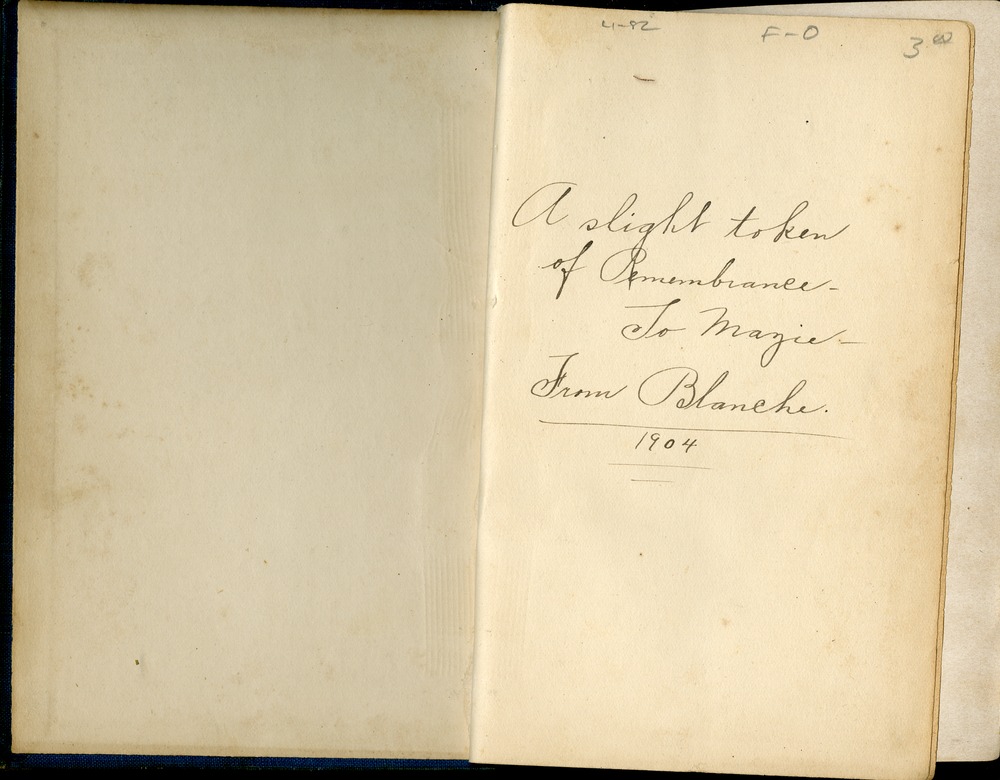 4-82 F-O 3 00
A slight token
of Remembrance-
To Mazie-
From Blanche.
1904